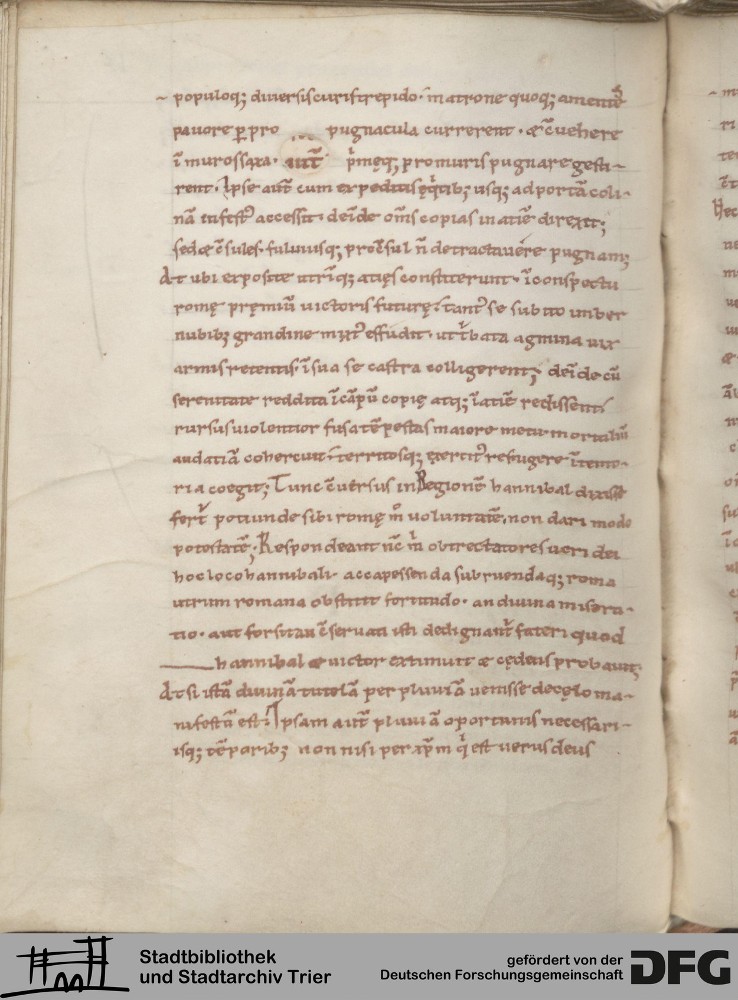 ~ populoq; diuersis curis trepido· matrone quoq; amentes
pauore p̱ pro pugnacula currerent· & c̄uehere
ī muros saxa· aut̄ p̄męq; pro muris pugnare gesti-
rent· Ipse aut̄ cum expeditis eq̇tib; usq; ad portā coli-
nā infest᾿ accessit· deīde om̄s copias in aciē direxit;
sed & c̄sules· fuluiusq; procōsul n̄ detractauere pugnam;
At ubi exposite utrīq; acięs constiterunt· ī conspectu
romę pręmiū uictoris futurę· tant᾿ se subito imber
nubib; grandine mixt᾿ effudit· ut t̄bata agmina uix
armis retentis· ī sua se castra colligerent; deīde cū
serenitate reddita ī cāpū copię atq; ī aciē redissent·
rursus uiolentior fusa tēpestas maiore metu mortaliū
audatiā cohercuit· territosq; exercit᾿ refugere ī temo-
ria coegit; Tunc c̄uersus in Regionē hannibal dixisse
fert̄ potiunde sibi romę m̊ uoluntatē, non dari modo
potestatē; Respondeant nc̄ m̄ obtrectatores ueri dei
hoc loco hannibali· accapessenda subruendaq; roma
utrum romana obstitit fortitudo· an diuina miserti-
tio· aut forsitan c̄seruati isti dedignant̄ fateri quod
hannibal & uictor extimuit & cędens probauit;
At si istā diuinā tutelā per pluuiā uenisse de cęlo ma-
nifestū est· Ipsam aut̄ pluuiā oportunis necessari-
isq; tēporib; non nisi per xp̄m q̇ est uerus deus
Stadtbibliothek
und Stadtarchiv Trier
gefördert von der
Deutschen Forschungsgemeinschaft
DFG